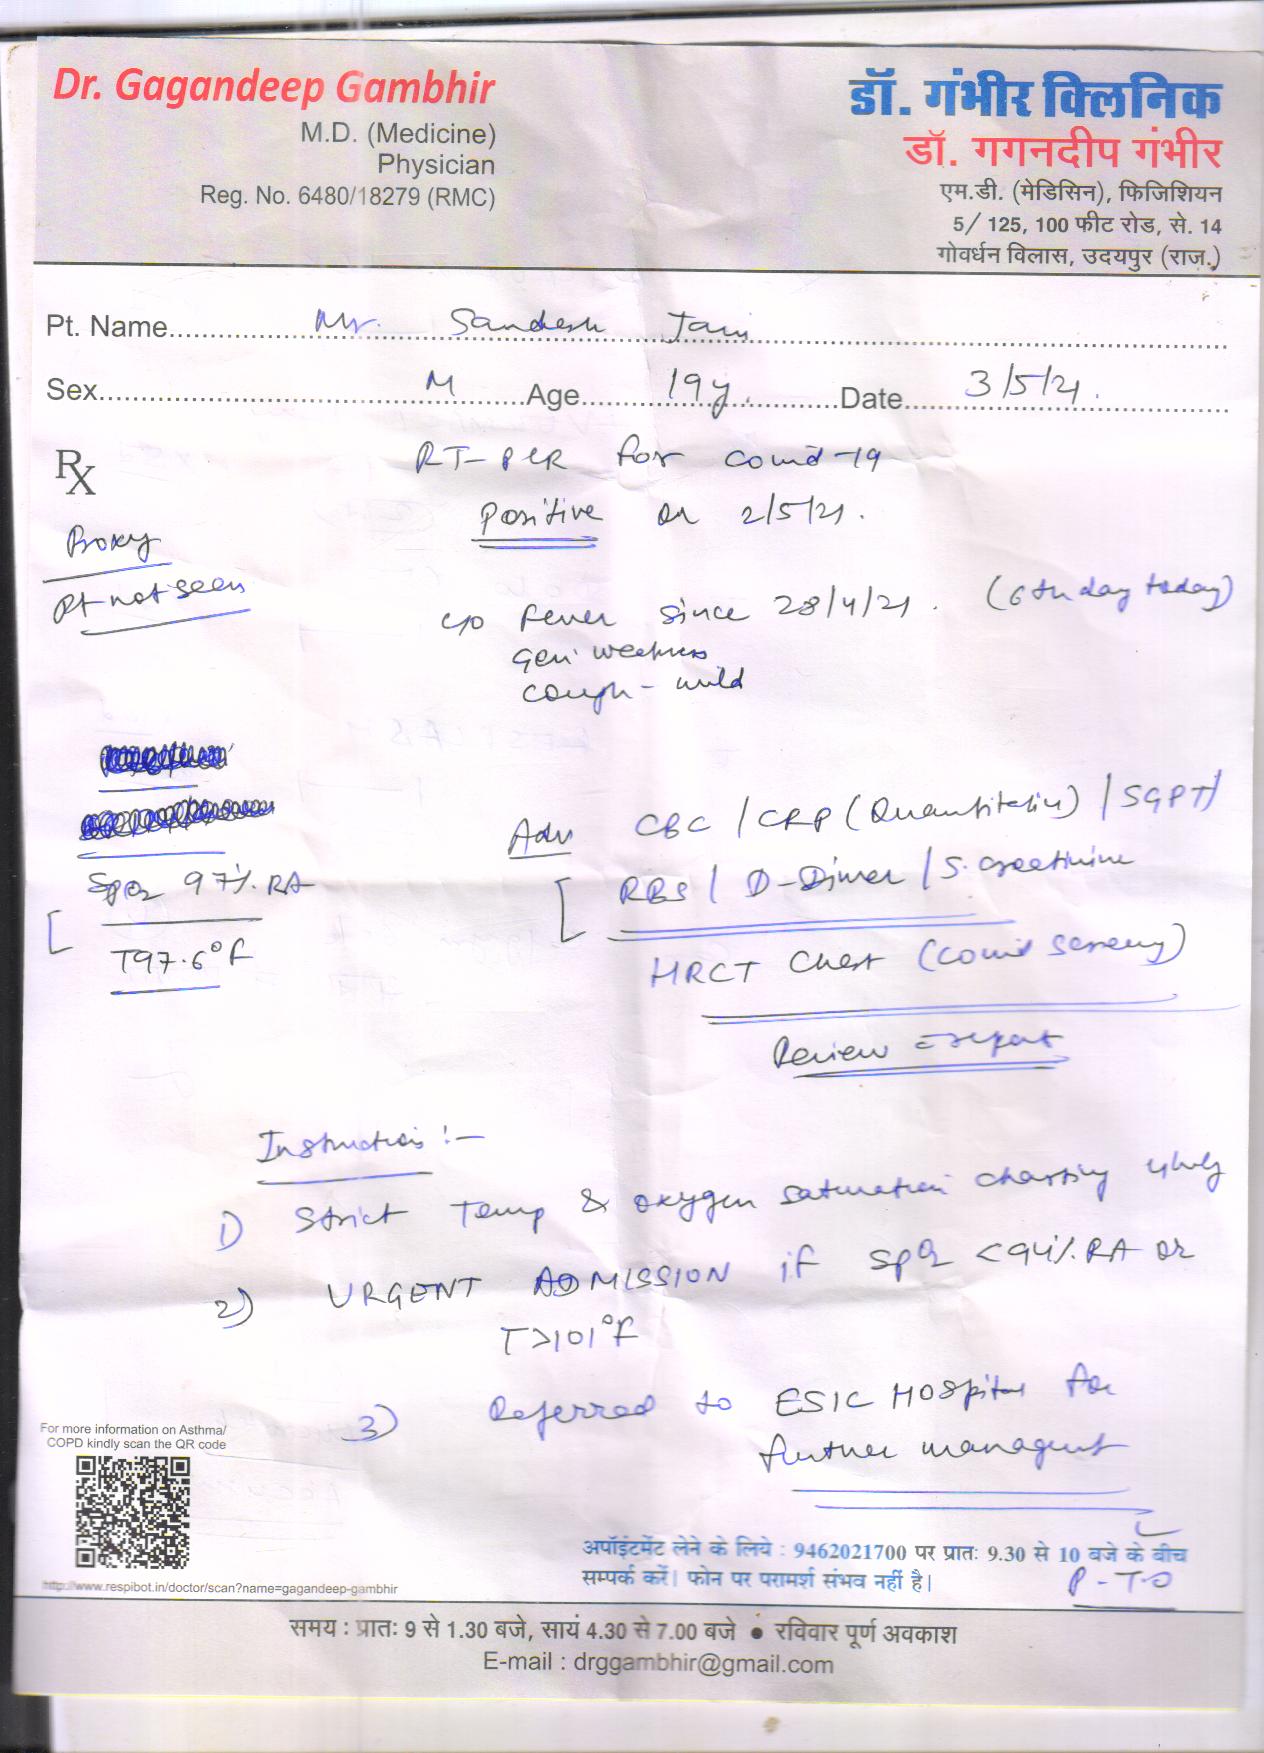 Dr. Gagandeep Gambhir
M.D. (Medicine)
Physician
Reg. No. 6480/18279 (RMC)
डॉ. गंभीर क्लिनिक
डॉ. गगनदीप गंभीर
एम.डी. (मेडिसिन), फिजिशियन
5/ 125, 100 फीट रोड, से. 14
गोवर्धन विलास, उदयपुर (राज.)
Pt. Name Mr. Sandesh Jain
Sex M Age 19y. Date 3/5/21.
Rx
RT-PCR for Covid-19
Positive on 2/5/21.
Proxy
Pt not seen
c/o Fever since 28/4/21. (6th day today)
gen weakness
cough - mild
SpO2 97% RA
T97.6°F
Adv CBC / CRP (Quantitative) / SGPT/
RBS / D-Dimer / S. creatinine
HRCT Chest (Covid
Review c report
Instructions :-
1) Strict Temp & oxygen saturation charting 4hrly
2) URGENT ADMISSION if SpO2 <94% RA or
T>101°F
3) Referred to ESIC Hospital for
further managent
P-T-O
For more information on Asthma/
COPD kindly scan the QR code
http://www.respibot.in/doctor/scan?name=gagandeep-gambhir
अपॉइंटमेंट लेने के लिये : 9462021700 पर प्रातः 9.30 से 10 बजे के बीच
सम्पर्क करें। फोन पर परामर्श संभव नहीं है।
समय : प्रातः 9 से 1.30 बजे, सायं 4.30 से 7.00 बजे ● रविवार पूर्ण अवकाश
E-mail : drggambhir@gmail.com